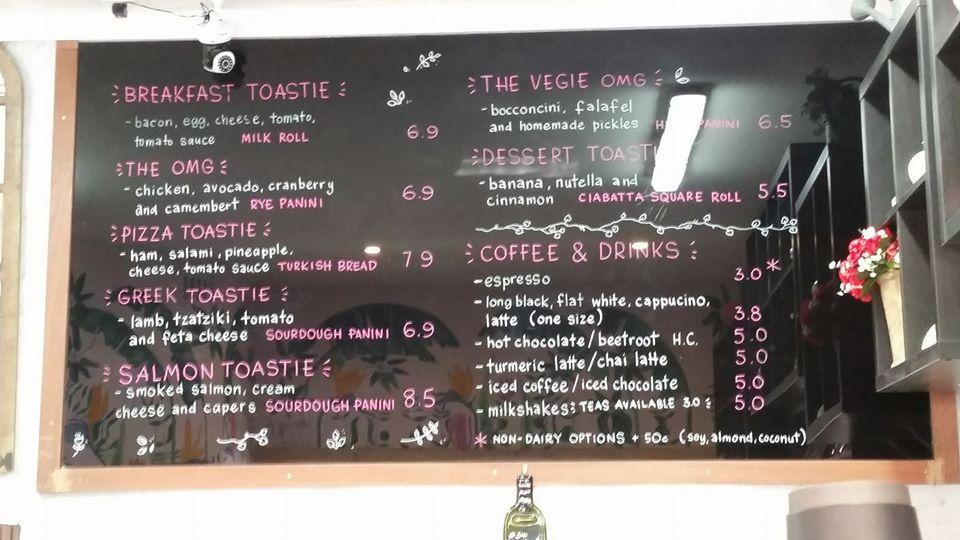 BREAKFAST TOASTIE
- bacon, egg, cheese, tomato,
tomato sauce MILK ROLL 6.9
THE OMG
- chicken, avocado, cranberry
and camembert RYE PANINI 6.9
PIZZA TOASTIE
- ham, salami, pineapple,
cheese, tomato sauce TURKISH BREAD 7 9
GREEK TOASTIE
- lamb, tzatziki, tomato
and feta cheese SOURDOUGH PANINI 6.9
SALMON TOASTIE
- smoked salmon, cream
cheese and capers SOURDOUGH PANINI 8.5
THE VEGIE OMG
- bocconcini, falafel
and homemade pickles PANINI 6.5
DESSERT
- banana, nutella and
cinnamon CIABATTA SQUARE ROLL 5.5
COFFEE & DRINKS
- espresso 3.0*
- long black, flat white, cappucino,
latte (one size) 3.8
- hot chocolate/beetroot H.C. 5.0
- turmeric latte/chai latte 5.0
- iced coffee/iced chocolate 5.0
- milkshakes TEAS AVAILABLE 3.0 5.0
* NON-DAIRY OPTIONS + 50c (soy, almond, coconut)